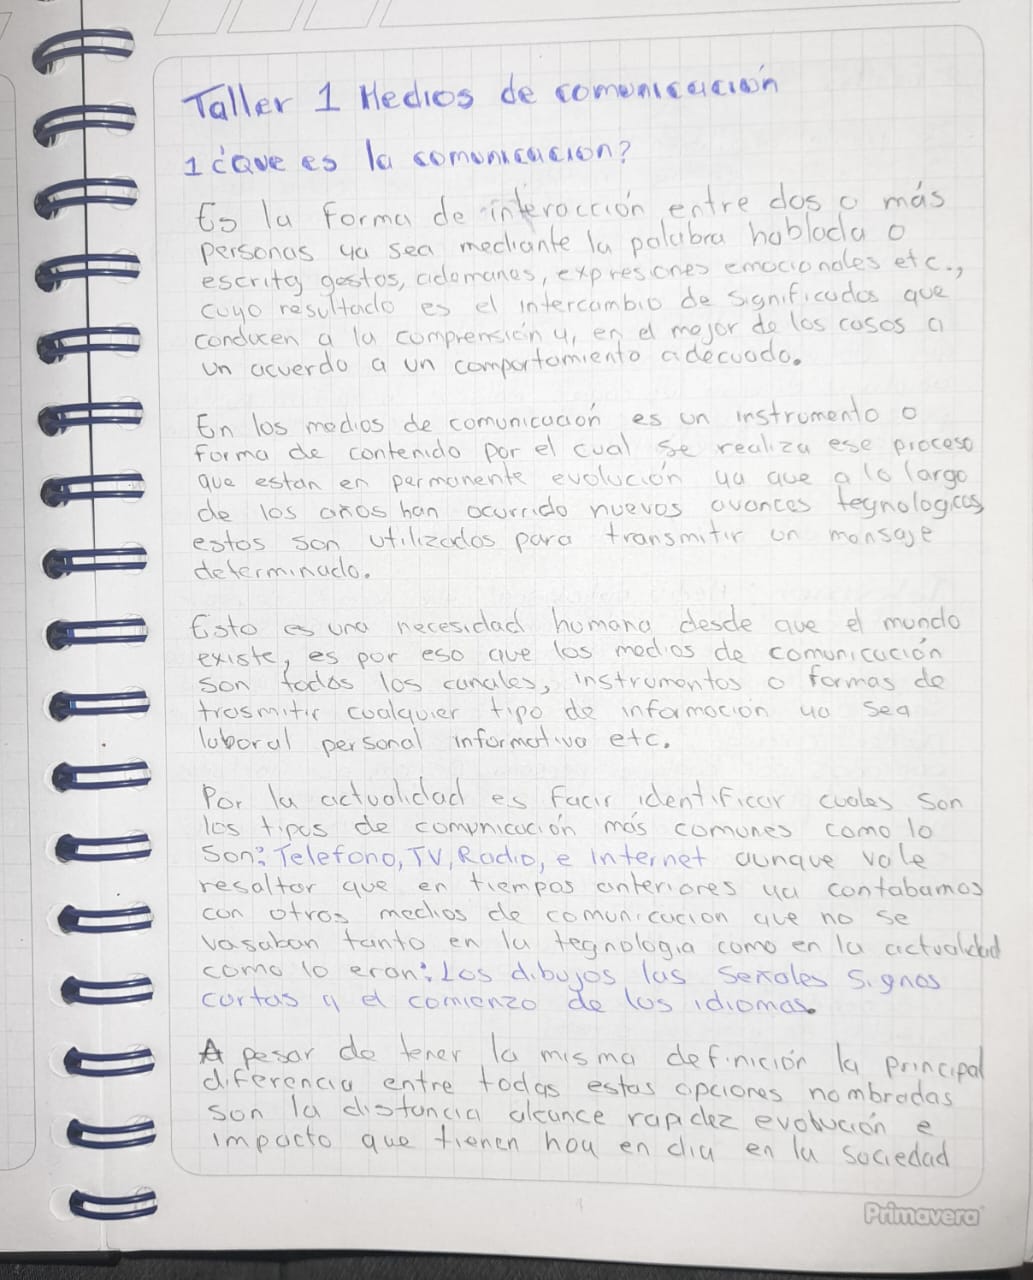 Taller 1 Medios de comunicación
1 ¿Que es la comunicacion?
Es la forma de interacción entre dos o más
personas ya sea mediante la palabra hablada o
escrita gestos, ademanes, expresiones emocionales etc.,
cuyo resultado es el intercambio de significados que
conducen a la comprensión y, en el mejor de los casos a
un acuerdo a un comportamiento adecuado.
En los medios de comunicación es un instrumento o
forma de contenido por el cual se realiza ese proceso
que estan en permanente evolución ya que a lo largo
de los años han ocurrido nuevos avances tegnologicos
estos son utilizados para transmitir un mensaje
determinado.
Esto es una necesidad humana desde que el mundo
existe, es por eso que los medios de comunicación
son todos los canales, instrumentos o formas de
trasmitir cualquier tipo de información ya sea
laboral personal informativa etc.
Por la actualidad es facir identificar cuales son
los tipos de comunicación más comunes como lo
son: Telefono, TV, Radio, e Internet aunque vale
resaltar que en tiempos anteriores ya contabamos
con otros medios de comunicacion que no se
vasaban tanto en la tegnologia como en la actualidad
como lo eran: Los dibujos las Señales Signos
cartas y el comienzo de los idiomas.
A pesar de tener la misma definición la principal
diferencia entre todas estas opciones nombradas
son la distancia alcance rapidez evolución e
impacto que tienen hoy en dia en la sociedad
Primavera